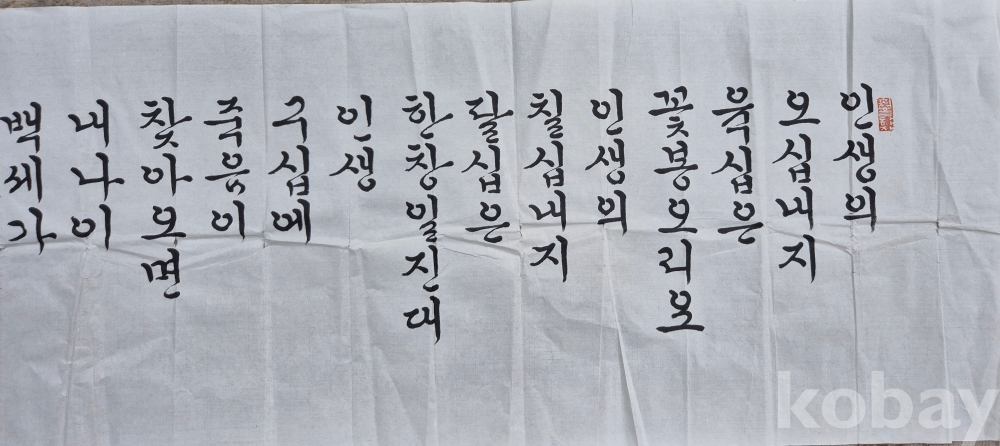 인생의
오십내지
육십은
꽃봉오리오
인생의
칠십내지
팔십은
한창일진대
인생
구십에
죽음이
찾아오면
내나이
백세가
kobay